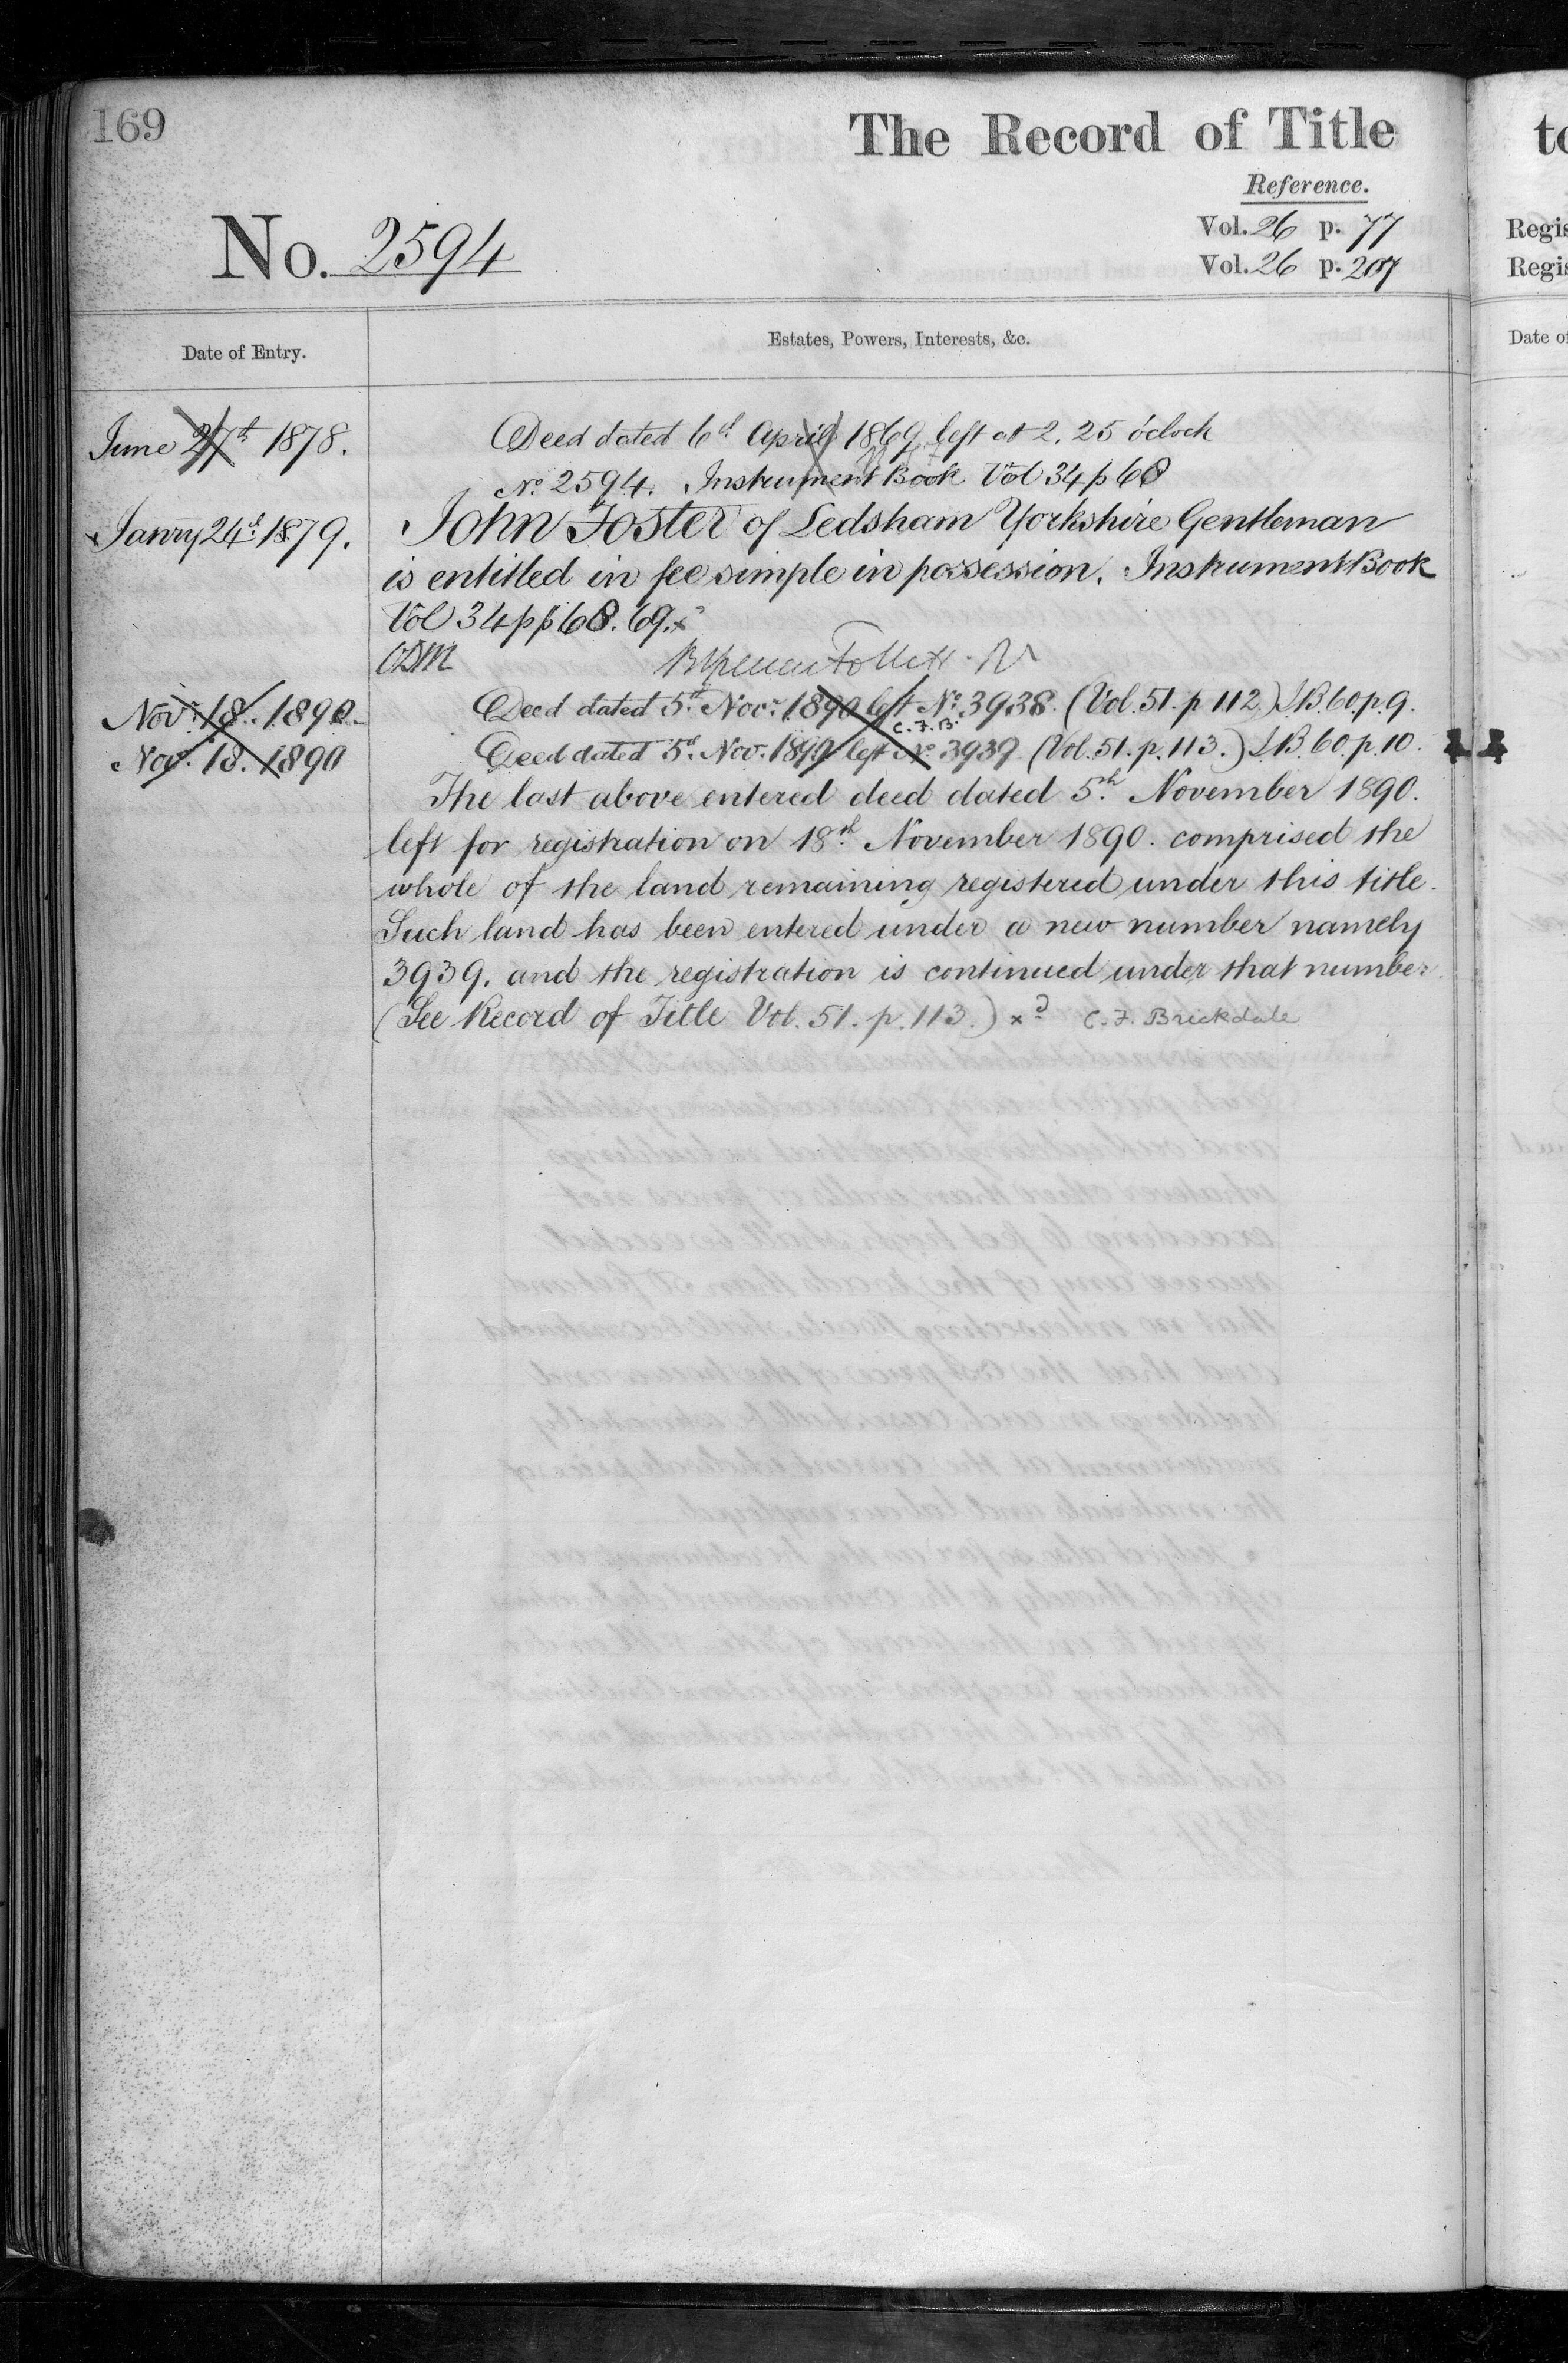 169
The Record of Title
Reference.
No. 2594
Vol. 26 p. 77
Vol. 26 p. 207
Date of Entry.
Estates, Powers, Interests, &c.
June 27th 1878.
Deed dated 6th April 1869 left at 2.25 o'clock
No. 2594. Instrument Book Vol 34 p 68
Janry 24th 1879.
John Foster of Ledsham Yorkshire Gentleman
is entitled in fee simple in possession. Instrument Book
Vol 34 pp 68. 69. x
Nov. 18. 1890.
Deed dated 5th Nov. 1890 left No. 3938. (Vol. 51. p 112.) I.B. 60. p. 9.
C.F.B.
Nov. 18. 1890
Deed dated 5th Nov. 1890 left No. 3939 (Vol. 51. p. 113.) I.B. 60. p. 10.
The last above entered deed dated 5th November 1890.
left for registration on 18th November 1890. comprised the
whole of the land remaining registered under this title.
Such land has been entered under a new number namely
3939. and the registration is continued under that number
(See Record of Title Vol. 51. p. 113.) xd C. F. Brickdale
to
Regis
Regis
Date of